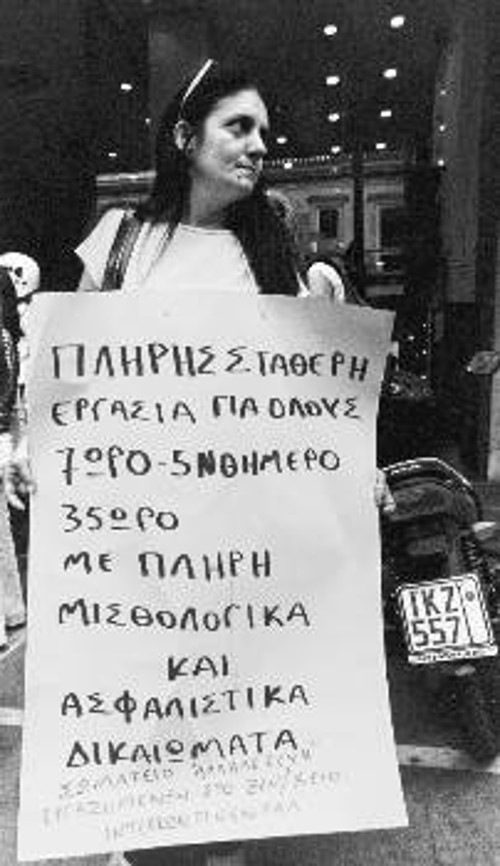 ΠΛΗΡΗΣ ΣΤΑΘΕΡΗ
ΕΡΓΑΣΙΑ ΓΙΑ ΟΛΟΥΣ
7ΩΡΟ-5ΝΘΗΜΕΡΟ
35ΩΡΟ
ΜΕ ΠΛΗΡΗ
ΜΙΣΘΟΛΟΓΙΚΑ
ΚΑΙ
ΑΣΦΑΛΙΣΤΙΚΑ
ΔΙΚΑΙΩΜΑΤΑ
ΣΩΜΑΤΕΙΟ
ΣΤΟ ΞΕΝ/ΧΕΙΟ
ΙΚΖ
557